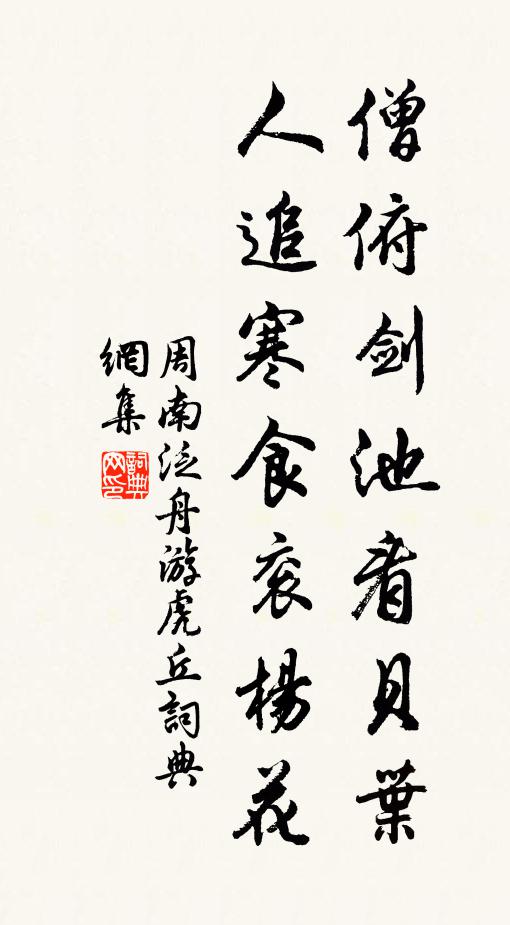 僧俯劍池看貝葉
人追寒食衮楊花
周南泛舟游虎丘詞典
網集
詞典
网印